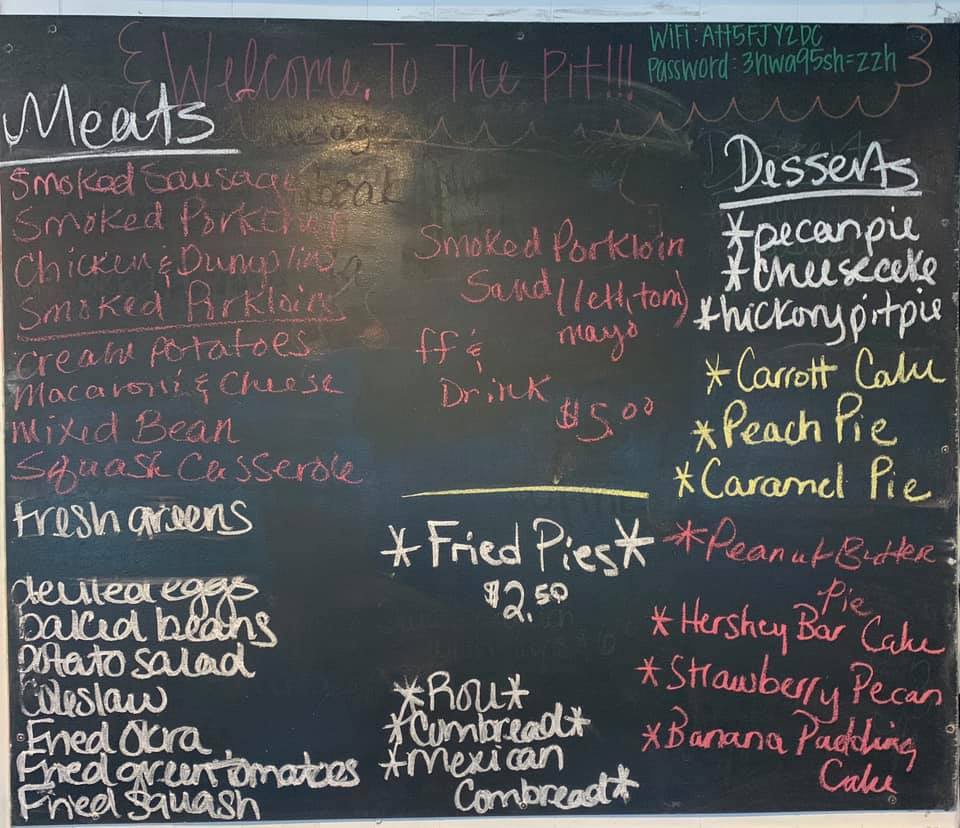 Welcome To The Pit!!!
WiFi: Att5FJY2DC
Password: 3hwa95sh=zzh
Meats
Smoked Sausage
Smoked Porkchop
Chicken & Dumpling
Smoked Porkloin
Cream potatoes
Macaroni & Cheese
Mixed Bean
Squash Casserole
Fresh greens
deviled eggs
baked beans
potato salad
Coleslaw
Fried Okra
Fried green tomatoes
Fried squash
Smoked Porkloin
Sand (lett, tom)
mayo
ff &
Drink
$5.00
*Fried Pies*
$2.50
*Roll*
*Cornbread*
*Mexican
Cornbread*
Desserts
*pecan pie
*Cheesecake
*hickory pit pie
*Carrott Cake
*Peach Pie
*Caramel Pie
*Peanut Butter
Pie
*Hershey Bar Cake
*Strawberry Pecan
*Banana Pudding
Cake